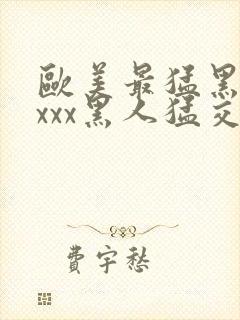 歐美最猛黑
xxx黑人猛交
費宇愁